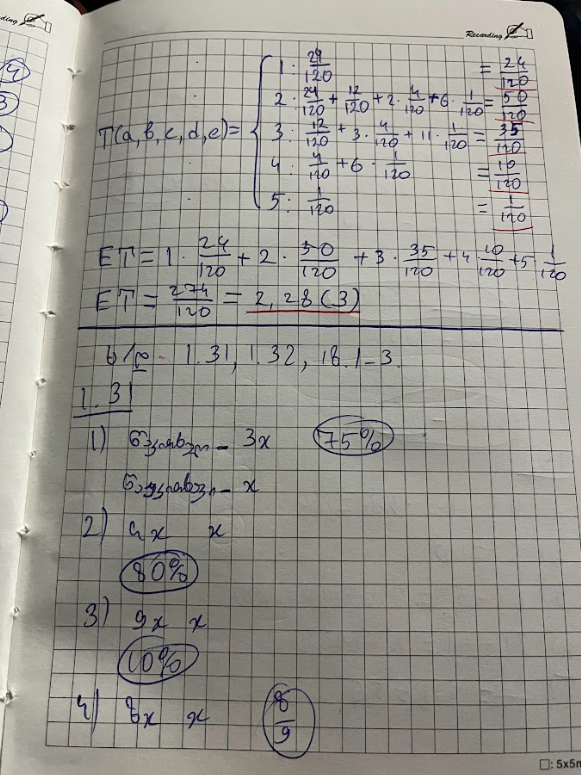 Recording
Recording
T(a,b,c,d,e)= {
1: 24/120 = 24/120
2: 24/120 + 12/120 + 2· 4/120 + 6· 1/120 = 50/120
3: 12/120 + 3· 4/120 + 11· 1/120 = 35/120
4: 4/120 + 6· 1/120 = 10/120
5: 1/120 = 1/120
ET = 1· 24/120 + 2· 50/120 + 3· 35/120 + 4 10/120 + 5· 1/120
ET = 274/120 = 2,28(3)
1.31, 1.32, 18.1-3
1.31
1) 3x 75%
x
2) 4x x
80%
3) 9x x
10%
4) 8x x 8/9